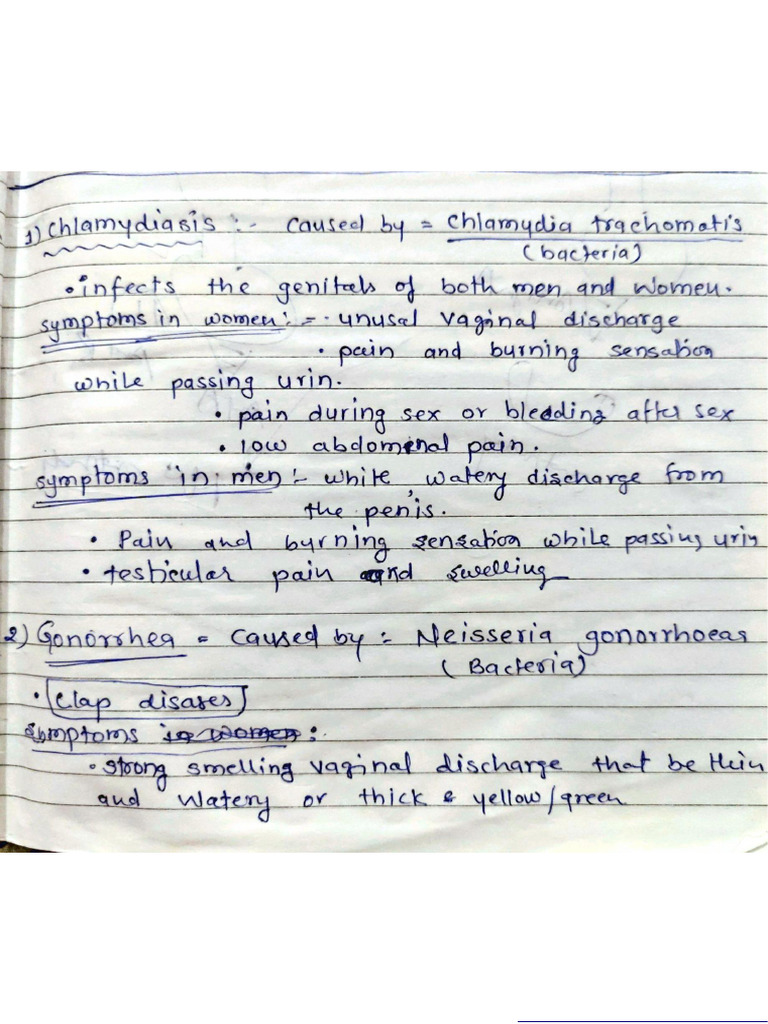 1) Chlamydiasis :- Caused by = Chlamydia trachomatis
(bacteria)
• infects the genitals of both men and women.
symptoms in women :- • unusal vaginal discharge
• pain and burning sensation
while passing urin.
• pain during sex or bleeding after sex
• low abdomenal pain.
symptoms in men :- white, watery discharge from
the penis.
• Pain and burning sensation while passing urin
• testicular pain and swelling
2) Gonorrhea = caused by = Neisseria gonorrhoeas
(Bacteria)
• Clap disases
symptoms in women :
• strong smelling vaginal discharge that be thin
and watery or thick & yellow/green